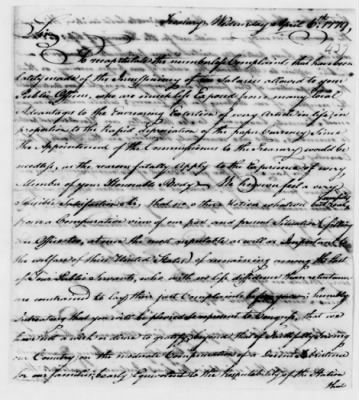 Treasury, Wednesday April 6th. 1779,
Sir,
432
To recapitulate the numberless Complaints that have been
lately made of the Insufficiency of the Salaries allowed to your
Public Officers, who are now left Exposed from many local
Disadvantages to the Encreasing Extortion of every Article in life, in
proportion to the Rapid depreciation of the paper Currency, Since
the Appointment of the Commissioners to the Treasury would be
needless, as the reasons fatally apply to the Experience of every
Member of your Honourable Body. We however feel a very
Sensible Satisfaction Sir, that no other Motive whatever
from a Comparative view of our past, and present Situation
in Office too, at once the most reputable as well as Important to
the welfare of these United States) of remaining among the last
of your Public Servants, who with no less diffidence than reluctance
are constrained to lay their just Complaints before you; humbly
intreating that you will be pleased to represent to Congress, that we
have not a wish or desire to gratify, beyond that of faithfully serving
our Country, on the moderate Compensation of a Decent Subsistence
for our families; barely Equivalent to the Respectability of the Station
that